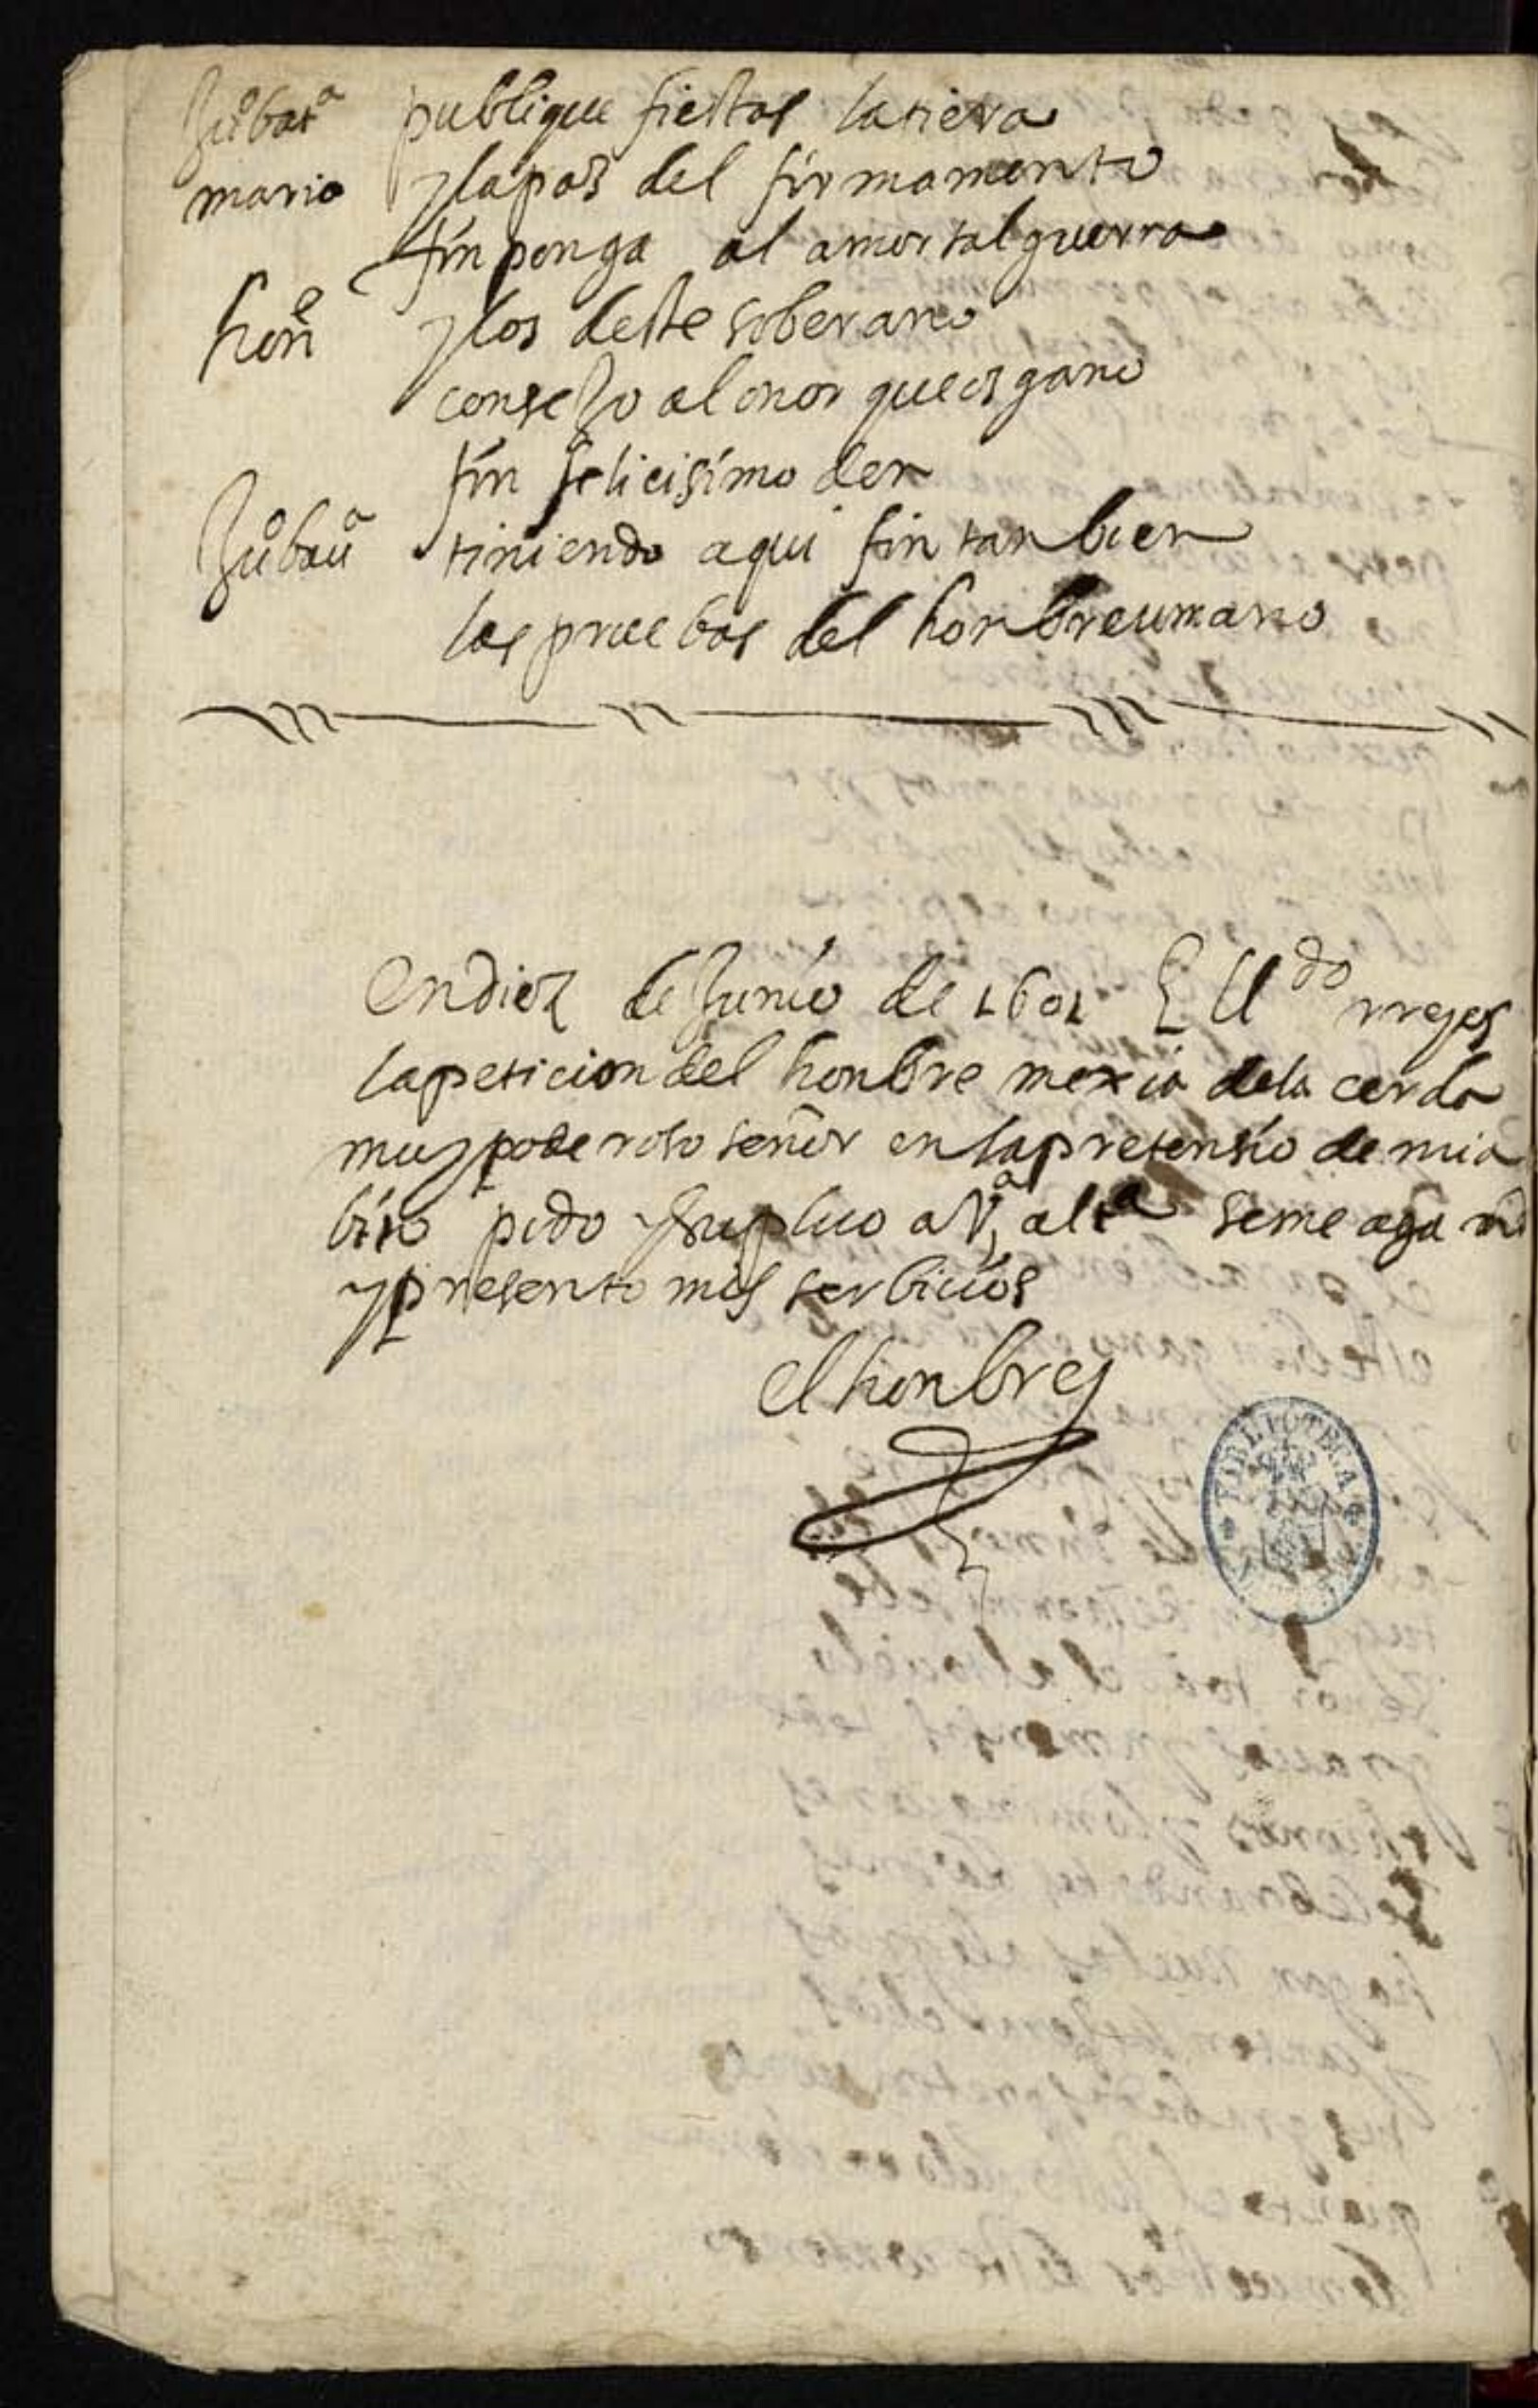 Juº batª publique fiestas la tierra
maria y la paz del firmamento
fin ponga al amortal guerra
honᵉ y los deste soberano
consejo al onor que os gano
fin felicisimo den
Juº bauª tiniendo aqui fin tanbien
las pruebas del honbre umano
En diez de Junio de 1601 El lldo rreyes
la peticion del honbre mexia de la cerda
muy poderoso señor en la pretensio de mi a
bito pido y suplico a Vª altª se me aga
y presento mis serbicios
el honbre
BIBLIOTECA